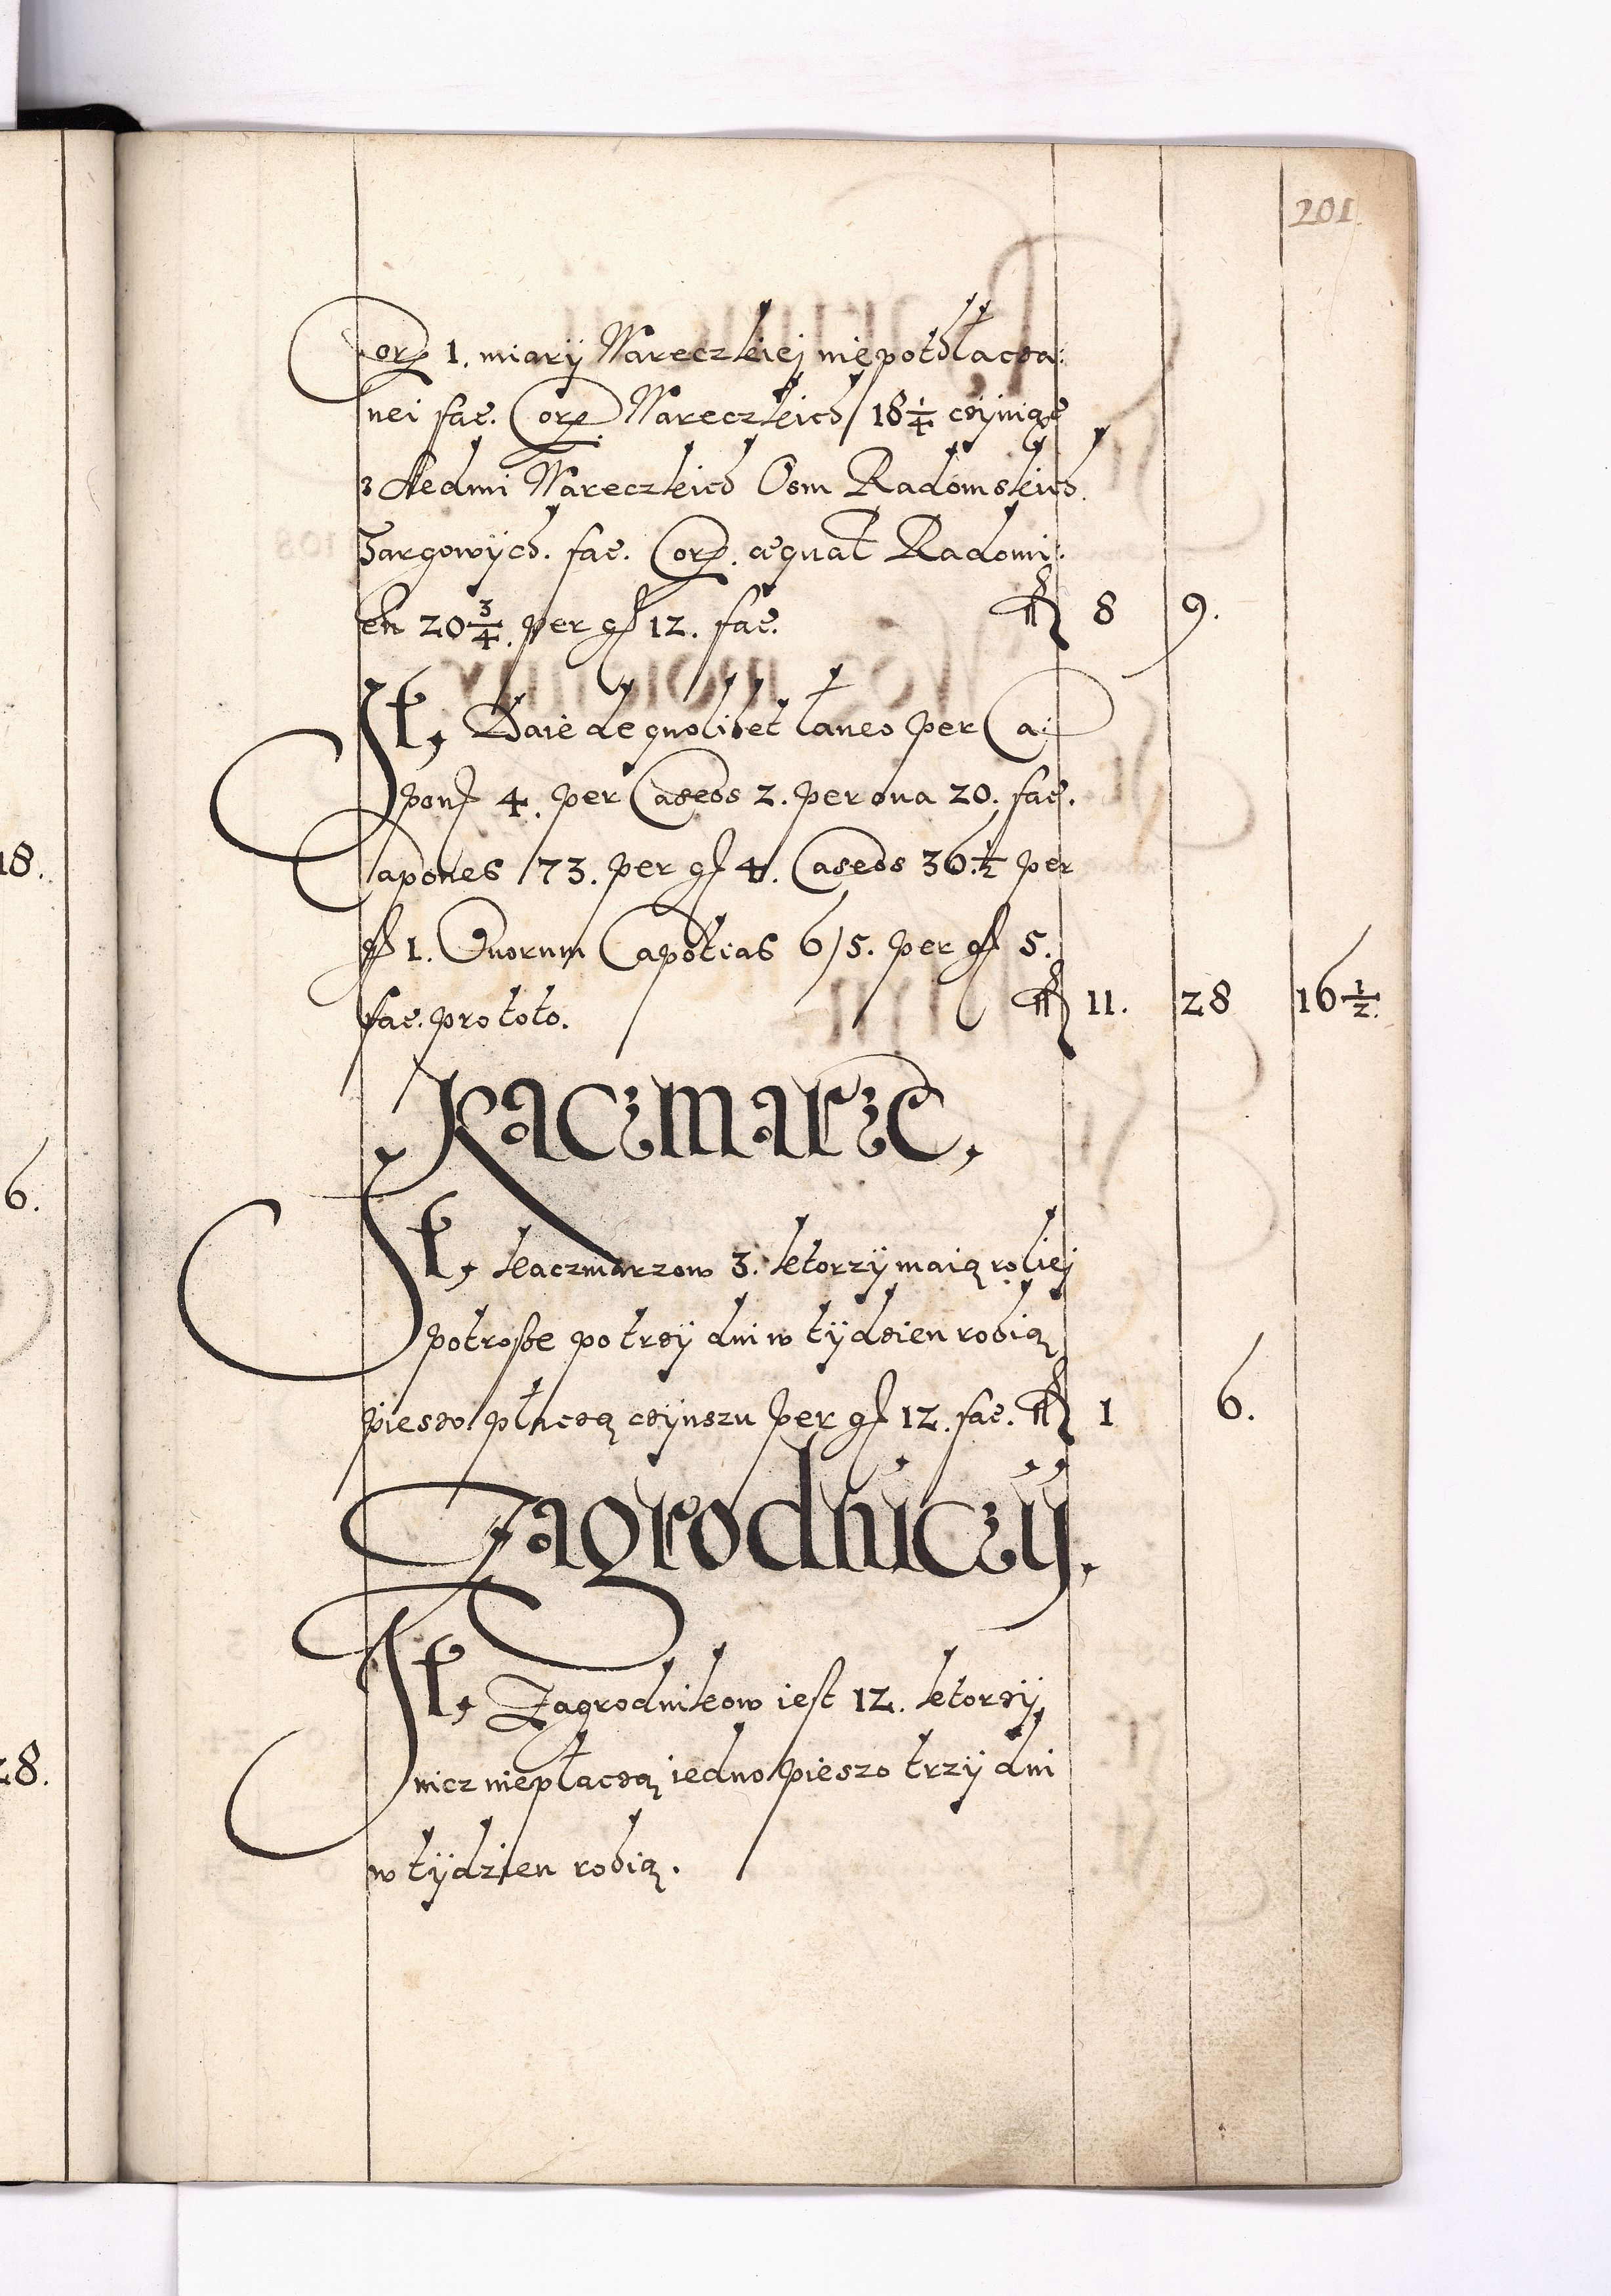 201
Corz 1. miarÿ Wareczkiej niepotdłacza:
nei fac. Corz. Wareczkich 18 1/4 czÿniąc
z siedmi Wareczkich Osm Radomskich
Targowÿch. fac. Corz. æquat Radomi:
en 20 3/4. per gſ 12. fac. fl 8 9.
It, Daie de quolibet laneo per Ca:
pon 4. per Caseos 2. per oua 20. fac.
Capones 73. per gſ 4. Caseos 36. 1/2 per
gſ 1. Ouorum Capetias 6/5. per gſ 5.
fac. pro toto. fl 11. 28 16 1/2.
Kaczmarze,
It, kaczmarzow 3. ktorzÿ maią roliej
potrosze po trzÿ dni w tÿdzien robią
pieszo płaczą czÿnszu per gſ 12. fac. fl 1 6.
Zagrodniczÿ.
It, Zagrodnikow iest 12. ktorzÿ
nicz niepłaczą iedno pieszo trzÿ dni
w tÿdzien robią.
18.
6.
28.